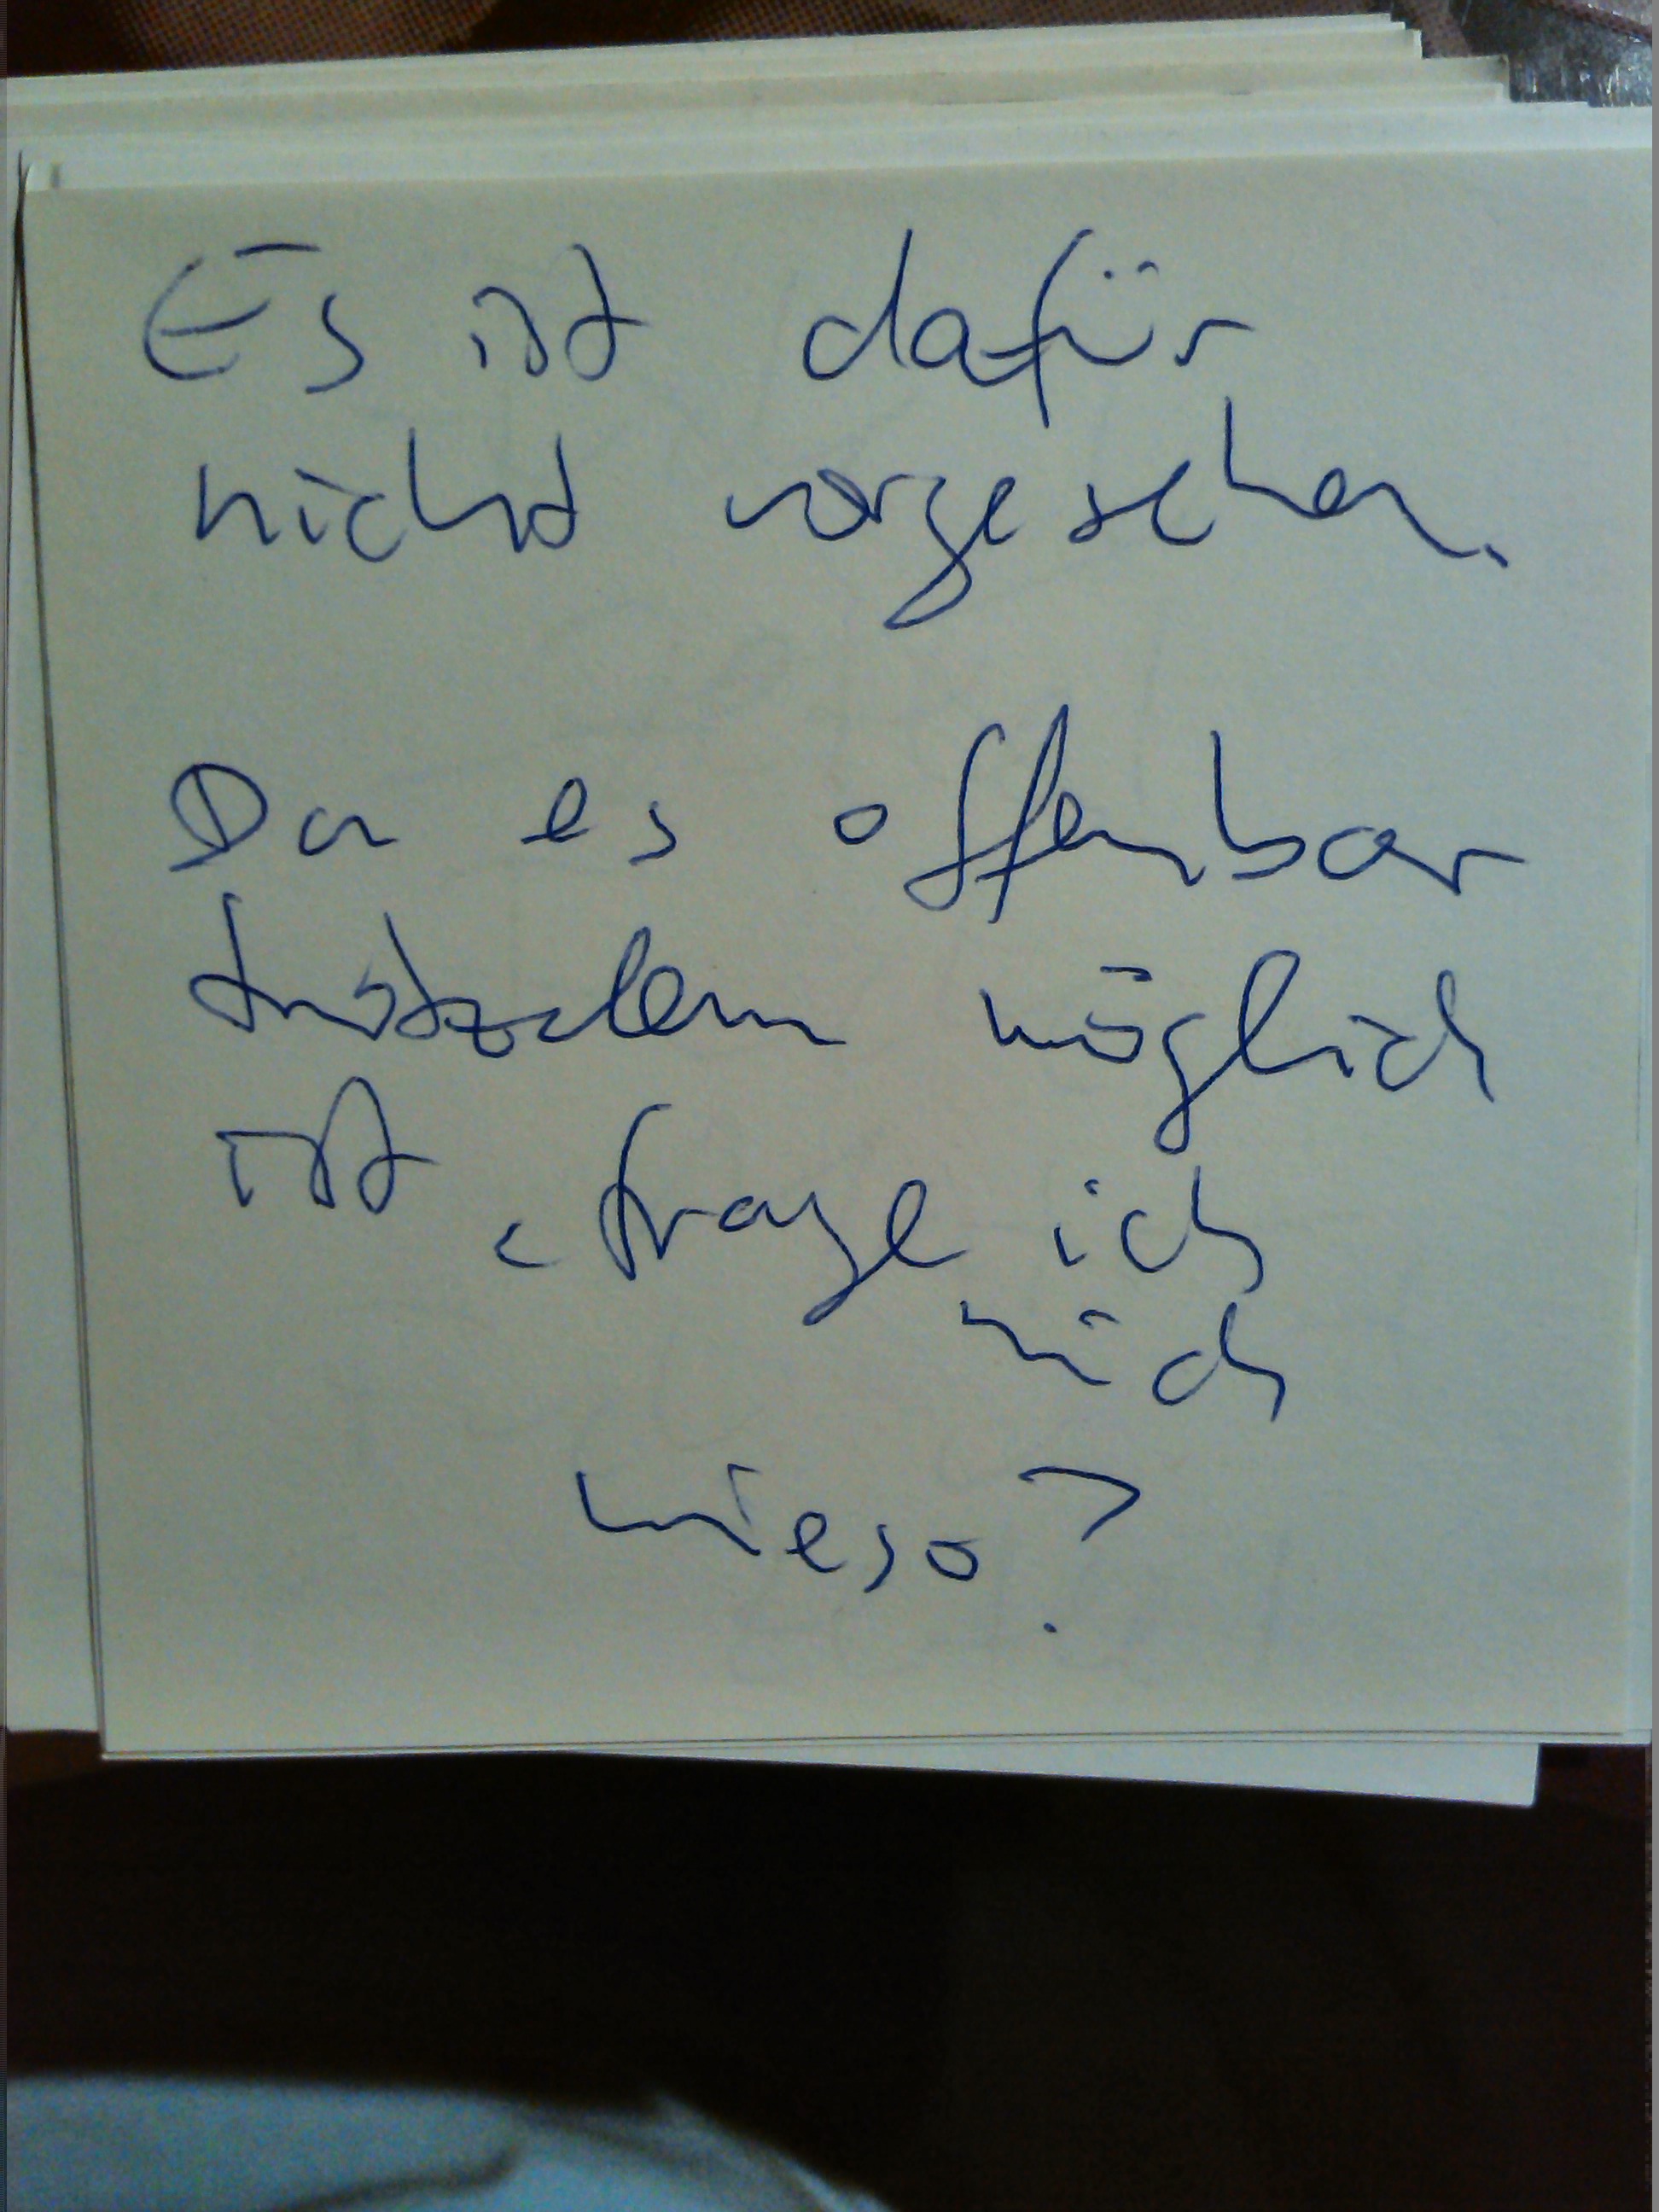 Es ist dafür
nicht vorgesehen.
Da es offenbar
trotzdem möglich
ist, frage ich
mich
wieso?